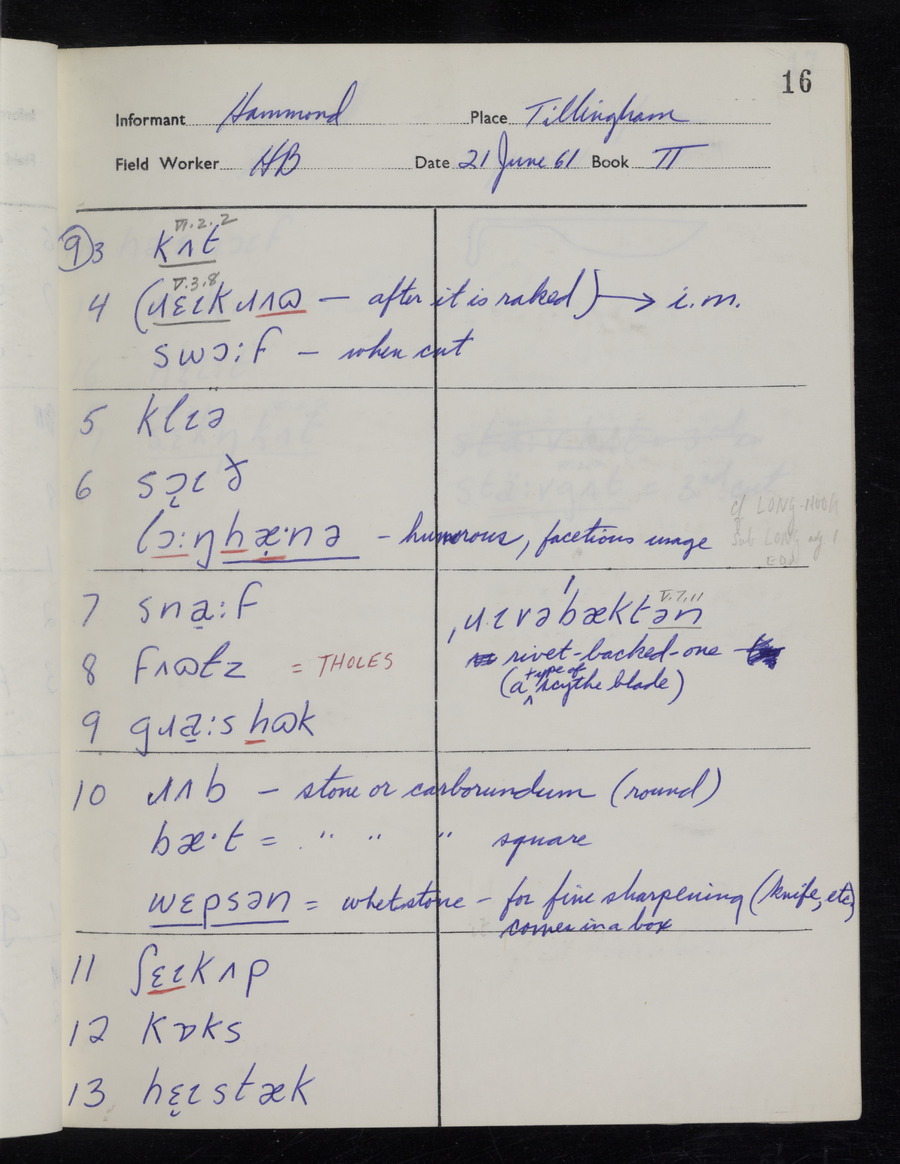 16
Informant Hammond Place Tillingham
Field Worker HB Date 21 June 61 Book II
VI.2.2
9 3 kʌt
V.3.8
4 (ɹɛɩkɹʌɷ — after it is raked) → i.m.
swɔ:f — when cut
5 klɩə
6 sɔ̨ɩð
lɔ:ŋhæ̣·nə — humorous, facetious usage
cf LONG-HOOK
sub LONG adj 1
EDD
7 snạ:f
V.7.11
ˌɹɩvəˈbæktən
8 fʌɷtz = THOLES
rivet-backed-one
(a type of scythe blade)
9 gɹạ:s hɷk
10 ɹʌb — stone or carborundum (round)
bæ·t = " " " square
wɛpsən = whetstone — for fine sharpening (knife, etc)
comes in a box
11 ʃɛɩkʌp
12 kɒks
13 hɛ̨ɩstæk